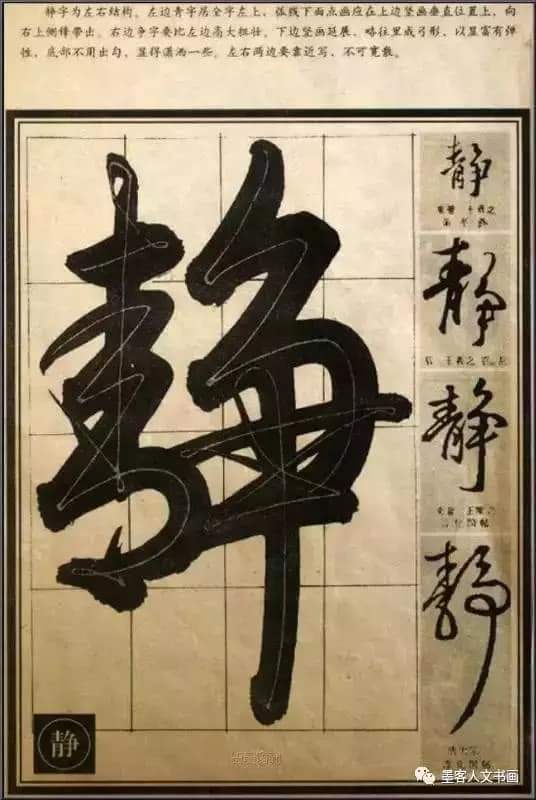 静字为左右结构。左边青字居全字左上，弧线下面点画应在上边竖画垂直位置上，向
右上侧锋带出。右边争字要比左边高大粗壮。下边竖画延展，略往里成弓形，以显富有弹
性，底部不用出勾，显得潇洒一些。左右两边要靠近写，不可宽散。
静
静
静
静
静
静
墨客人文书画